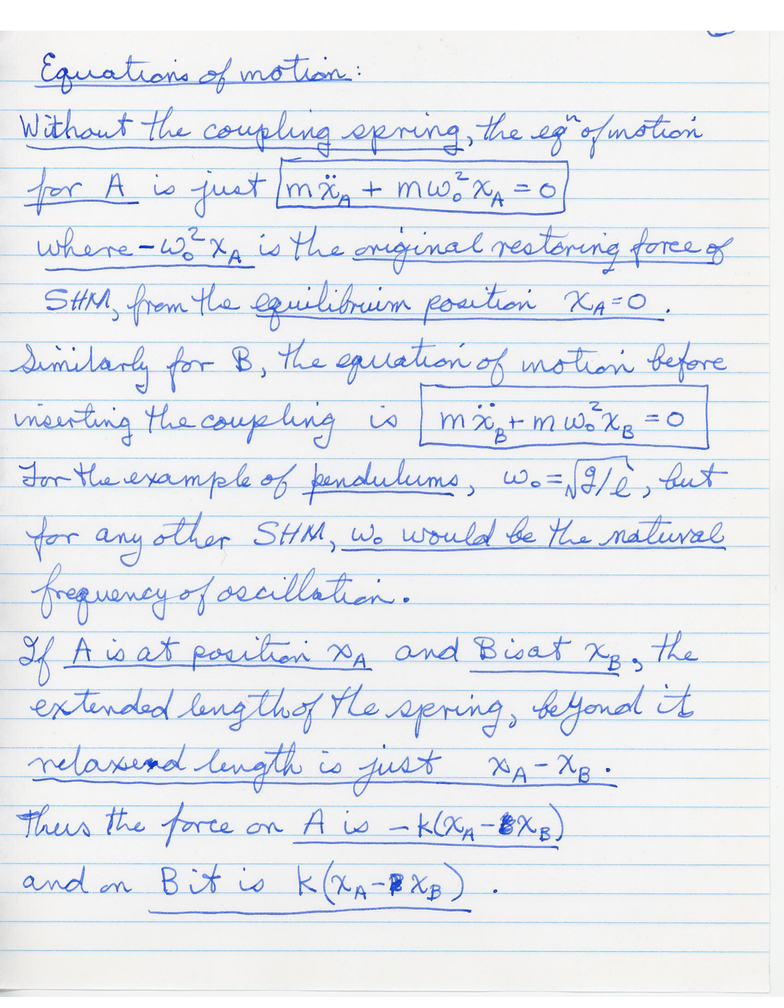 Equations of motion:
Without the coupling spring, the eqⁿ of motion
for A is just mẍ_A + mω₀²x_A = 0
where -ω₀²x_A is the original restoring force of
SHM, from the equilibrium position x_A=0.
Similarly for B, the equation of motion before
inserting the coupling is mẍ_B + mω₀²x_B = 0
For the example of pendulums, ω₀=√g/l, but
for any other SHM, ω₀ would be the natural
frequency of oscillation.
If A is at position x_A and B is at x_B, the
extended length of the spring, beyond it
relaxed length is just x_A-x_B.
Thus the force on A is -k(x_A-x_B)
and on B it is k(x_A-x_B).